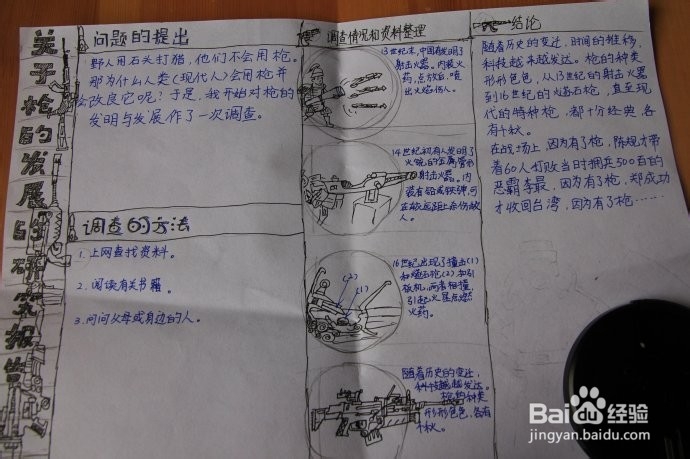 关于枪的发展的研究报告
问题的提出
野人用石头打猎，他们不会用枪。
那为什么人类(现代人)会用枪并
会改良它呢？于是，我开始对枪的
发明与发展作了一次调查。
调查的方法
1.上网查找资料。
2.阅读有关书籍。
3.问问父母或身边的人。
调查情况和资料整理
13世纪末，中国有发明了
射击火器。内装火
药，点放后，喷
出火焰伤人。
14世纪初有人发明了
火铳的金属管形
射击火器。内
装有铅或铁弹，可
在较远距离杀伤敌
人。
(2)
(1)
16世纪出现了撞击(1)
和燧石枪(2)
板机，两者相撞，
引起火星点燃
火药。
随着历史的变迁，
科技越来越发达。
枪的种类
形形色色，各有
千秋。
结论
随着历史的变迁，时间的推移，
科技越来越发达。枪的种类
形形色色，从13世纪的射击火器
到16世纪的燧石枪，直至现
代的特种枪，都十分经典，各
有千秋。
在战场上，因为有了枪，陈规才带
着60人打败当时拥兵500百的
恶霸李最，因为有了枪，郑成功
才收回台湾，因为有了枪……
Baidu经验
jingyan.baidu.com